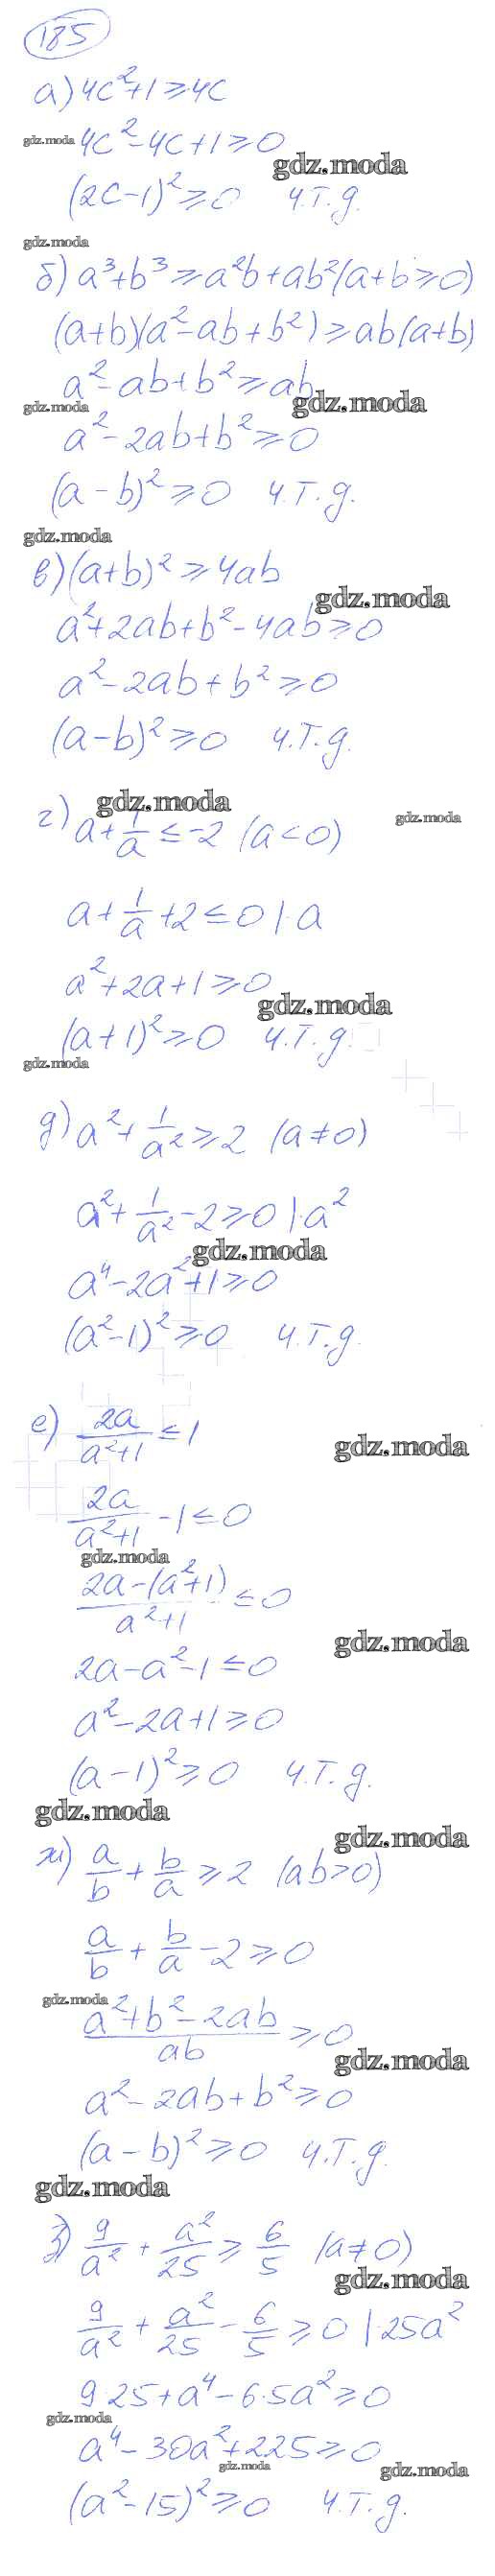 185
а) 4c²+1⩾4c
gdz.moda
4c²-4c+1⩾0
gdz.moda
(2c-1)²⩾0 ч.т.д.
gdz.moda
б) a³+b³⩾a²b+ab²(a+b⩾0)
(a+b)(a²-ab+b²)⩾ab(a+b)
a²-ab+b²⩾ab
gdz.moda
gdz.moda
a²-2ab+b²⩾0
(a-b)²⩾0 ч.т.д.
gdz.moda
в) (a+b)²⩾4ab
gdz.moda
a²+2ab+b²-4ab⩾0
a²-2ab+b²⩾0
(a-b)²⩾0 ч.т.д.
gdz.moda
г) a+1/a≤-2 (a<0)
gdz.moda
a+1/a+2≤0 |·a
a²+2a+1⩾0
gdz.moda
(a+1)²⩾0 ч.т.д.
gdz.moda
д) a²+1/a²⩾2 (a≠0)
a²+1/a²-2⩾0 |·a²
gdz.moda
a⁴-2a²+1⩾0
(a²-1)²⩾0 ч.т.д.
е) 2a/(a²+1)≤1
gdz.moda
2a/(a²+1)-1≤0
gdz.moda
(2a-(a²+1))/(a²+1)≤0
gdz.moda
2a-a²-1≤0
a²-2a+1⩾0
(a-1)²⩾0 ч.т.д.
gdz.moda
gdz.moda
ж) a/b+b/a⩾2 (ab>0)
a/b+b/a-2⩾0
gdz.moda
(a²+b²-2ab)/ab⩾0
gdz.moda
a²-2ab+b²⩾0
(a-b)²⩾0 ч.т.д.
gdz.moda
з) 9/a²+a²/25⩾6/5 (a≠0)
gdz.moda
9/a²+a²/25-6/5⩾0 |·25a²
9·25+a⁴-6·5a²⩾0
gdz.moda
a⁴-30a²+225⩾0
gdz.moda
gdz.moda
(a²-15)²⩾0 ч.т.д.